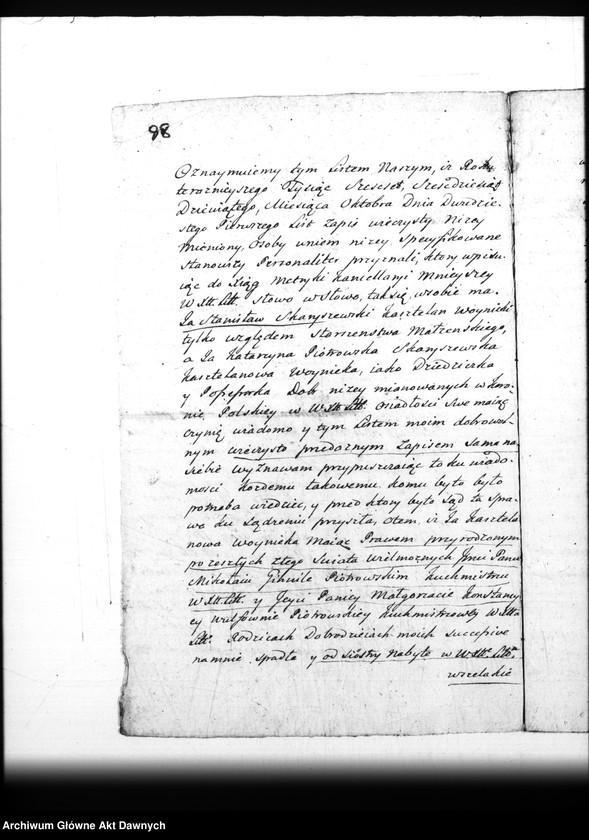 98
Oznaymuiemy tym Listem Naszym, iż Roku
teraznieyszego Tysiąc Szescset, Szescdziesiąt
Dziewiątego, Miesiąca Oktobra Dnia Dwudzie-
stego Pierwszego List Zapis wieczysty Nizey
Mieniony, Osoby wniem nizey Specyfikowane
Stanowszy Personaliter przyznali, ktory wpisu-
iąc do Xiąg Metryki Kancellaryi Mnieyszey
W Xtt. Litt. Słowo w Słowo, tak się w sobie ma.
Ja Stanisław Skaryszewski Kasztelan Woynicki
tylko względem Starszenstwa Małzenskiego,
a Ja Kataryna Piotrowska Skaryszewska
Kasztelanowa Woynicka, iako Dziedziczka
y Possessorka Dob nizey mianowanych w Koro-
nie Polskiey w W. Xtt. Litt. Osiadłosci swe maiąc
czynię wiadomo y tym Listem moim dobrowol-
nym wieczysto przedaznym Zapisem Sama na
siebie wyznawam przypuszczaiąc to ku wiado-
mosci kozdemu takowemu komu by to było
potrzeba wiedziec, y przed ktory by to Sąd ta Spra-
wa ku Sądzeniu przyszła, otem, iż Ja Kasztela-
nowa Woynicka Maiąc Prawem przyrodzonym
po zeszłych z tego Swiata Wielmoznych Jmci Panu
Mikołaiu Piotrowskim Kuchmistrzu
W Xtt. Litt. y Jeyci Paniey Małgorzacie Konstancy-
ey Wulfownie Piotrowskiey Kuchmistrzowey W Xtta
Litt. Rodzicach Dobrodzieiach moich successive
na mnie spadłe y od Siostry Nabyte w W. Xtt. Litt.
wszelakie
Archiwum Główne Akt Dawnych